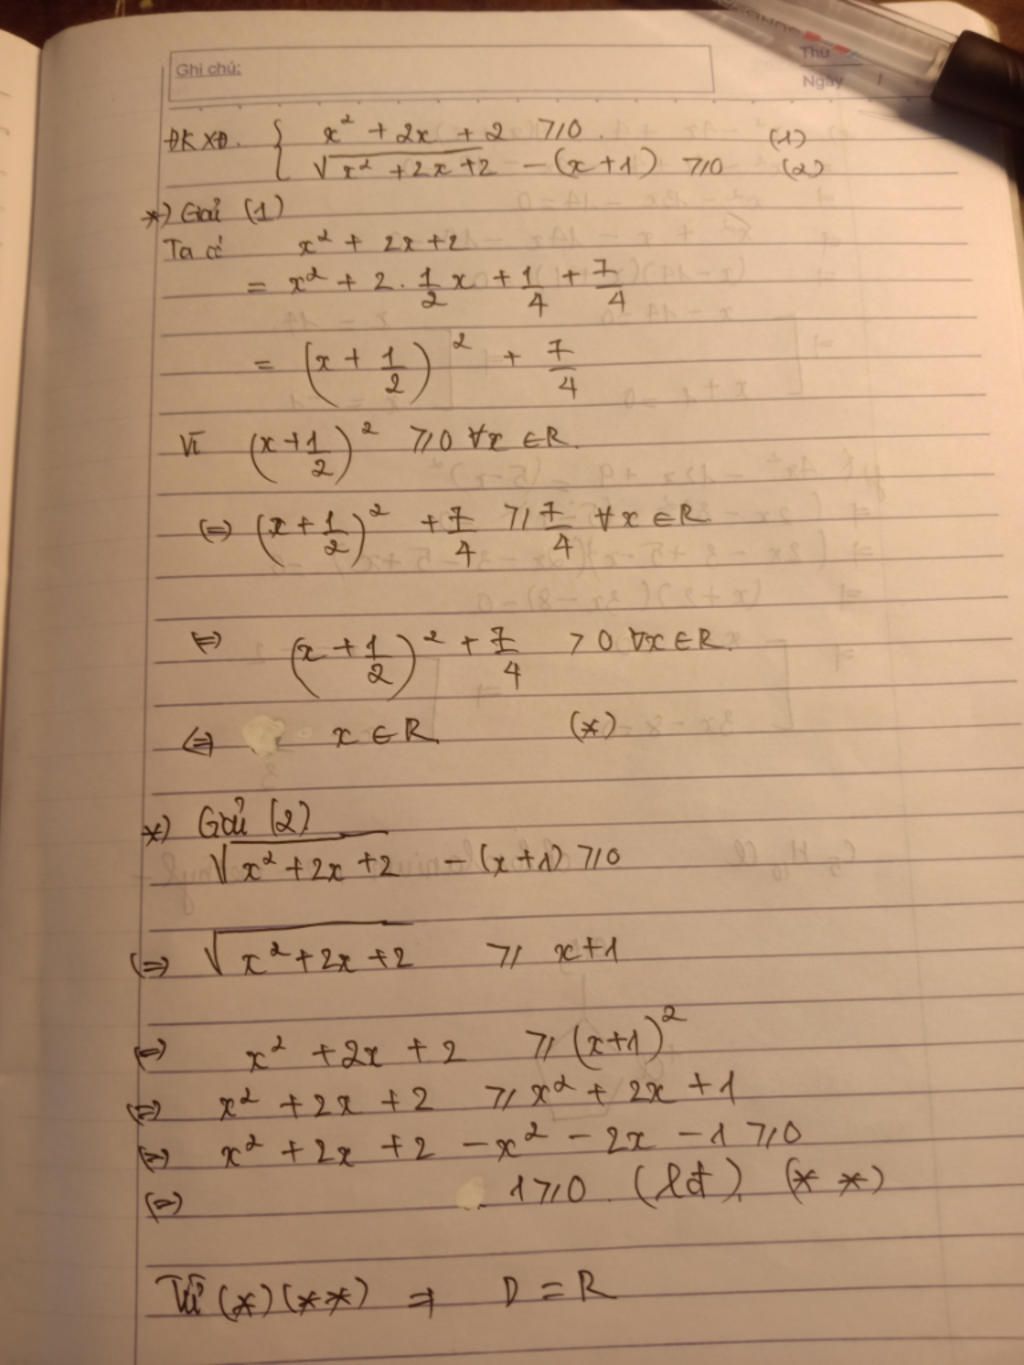 Ghi chú:
Thứ
Ngày /
ĐKXĐ. { x² + 2x + 2 ≥ 0. (1)
√(x² + 2x + 2) - (x + 1) ≥ 0 (2)
*) Giải (1)
Ta có x² + 2x + 2
= x² + 2. 1/2 x + 1/4 + 7/4
= (x + 1/2)² + 7/4
Vì (x + 1/2)² ≥ 0 ∀x ∈ R.
(=) (x + 1/2)² + 7/4 ≥ 7/4 ∀x ∈ R
(=) (x + 1/2)² + 7/4 > 0 ∀x ∈ R.
(=) x ∈ R (*)
*) Giải (2)
√(x² + 2x + 2) - (x + 1) ≥ 0
(=) √(x² + 2x + 2) ≥ x + 1
(=) x² + 2x + 2 ≥ (x + 1)²
(=) x² + 2x + 2 ≥ x² + 2x + 1
(=) x² + 2x + 2 - x² - 2x - 1 ≥ 0
(=) 1 ≥ 0. (lđ). (* *)
Từ (*) (* *) ⇒ D = R